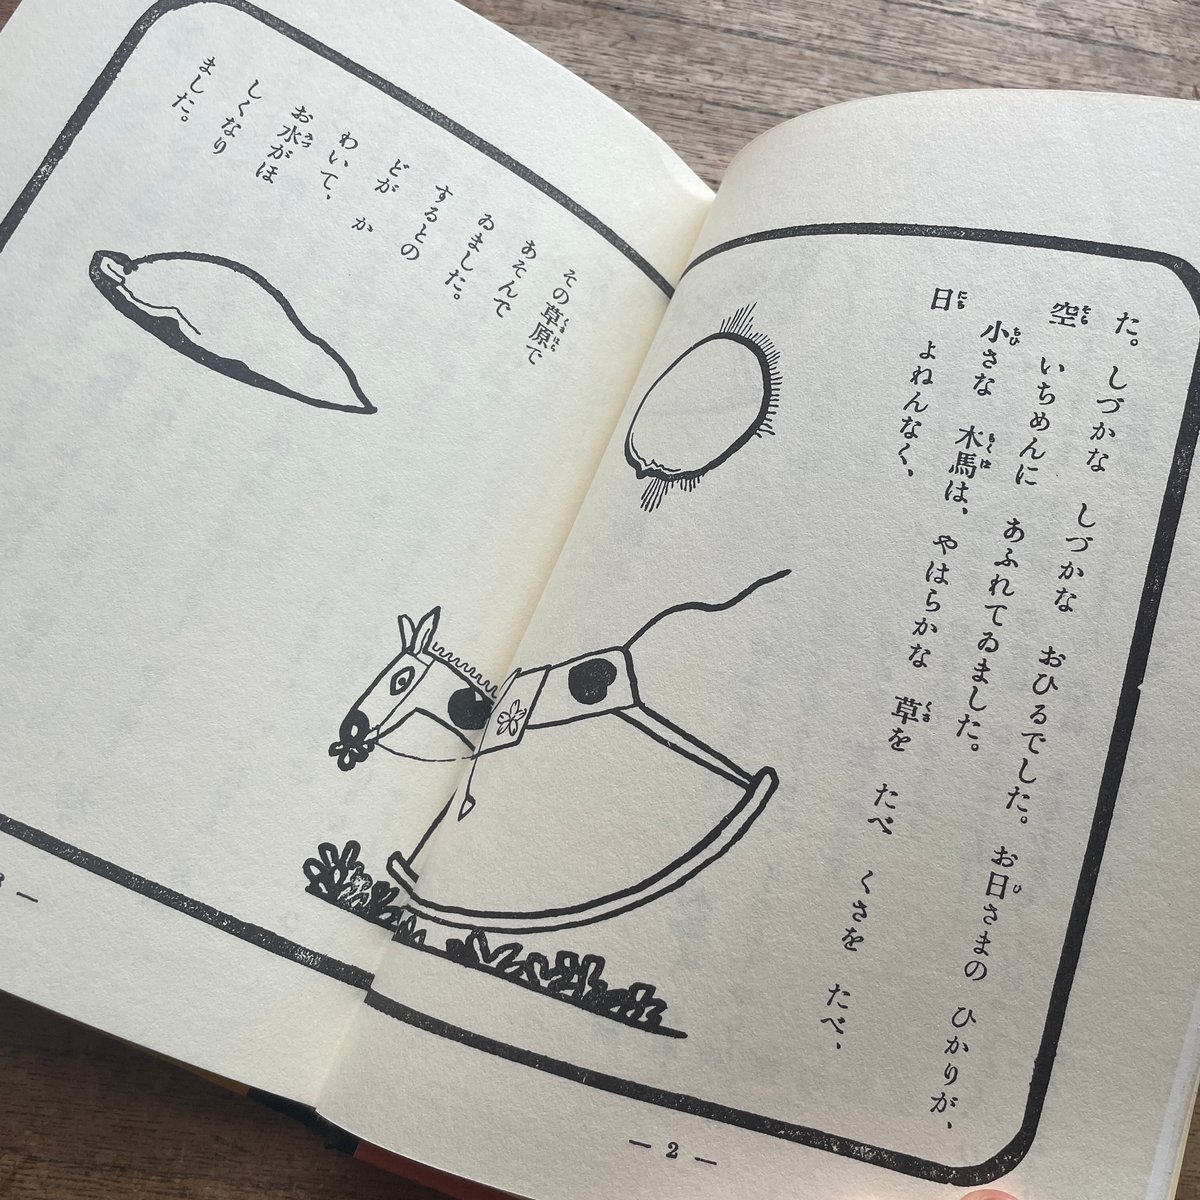 た。しづかな しづかな おひるでした。お日さまの ひかりが、
空 いちめんに あふれてゐました。
小さな 木馬は、やはらかな 草を たべ くさを たべ、
日 よねんなく、
— 2 —
その草原で
あそんで
ゐました。
するとの
どが か
わいて、
お水がほ
しくなり
ました。